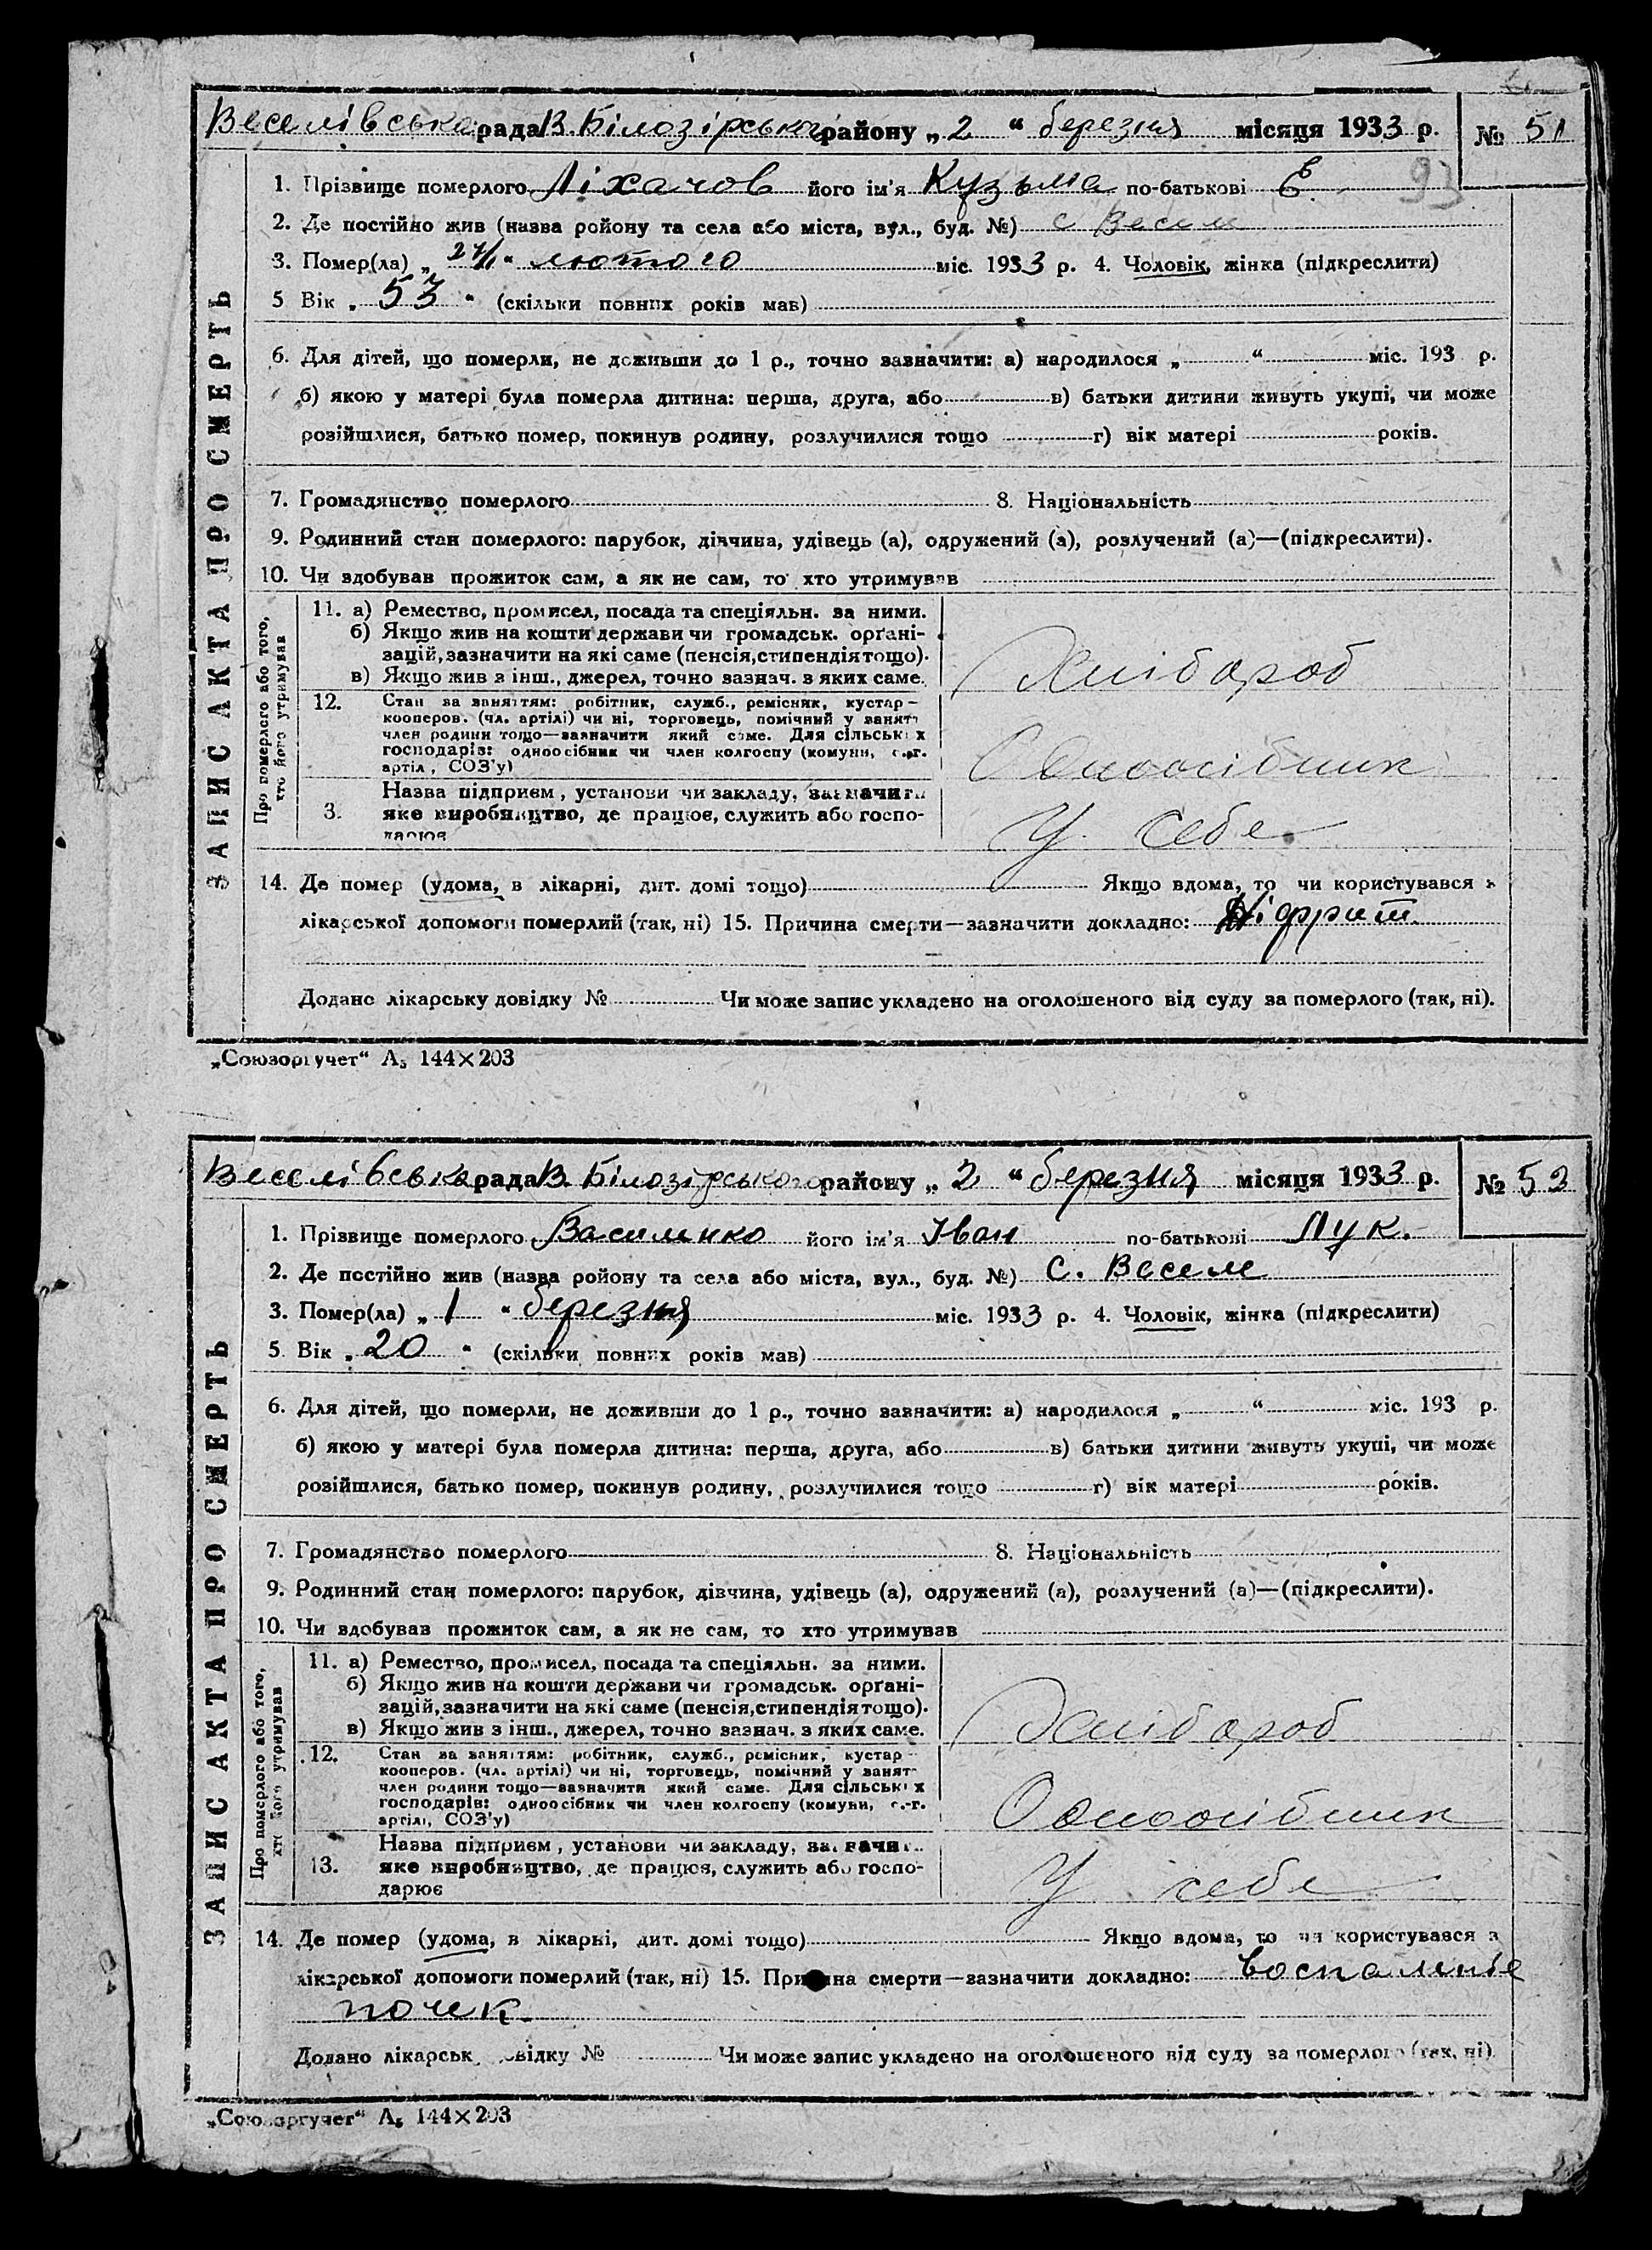 Веселівська рада В. Білозірського району „ 2 “ березня місяця 1933 р. № 51
93
1. Прізвище померлого Ліхачов його ім'я Кузьма по-батькові Е.
2. Де постійно жив (назва ройону та села або міста, вул., буд. №) с Весели
3. Помер(ла) „ “ лютого міс. 1933 р. 4. Чоловік, жінка (підкреслити)
5 Вік „ 53 “ (скільки повних років мав)
6. Для дітей, що померли, не доживши до 1 р., точно зазначити: а) народилося „ “ міс. 193 р.
б) якою у матері була померла дитина: перша, друга, або в) батьки дитини живуть укупі, чи може
розійшлися, батько помер, покинув родину, розлучилися тощо г) вік матері років.
7. Громадянство померлого 8. Національність
9. Родинний стан померлого: парубок, дівчина, удівець (а), одружений (а), розлучений (а)—(підкреслити).
10. Чи здобував прожиток сам, а як не сам, то хто утримував
ЗАПИС АКТА ПРО СМЕРТЬ
Про померлого або того,
хто його утримував
11. а) Ремество, промисел, посада та спеціяльн. за ними.
б) Якщо жив на кошти держави чи громадськ. органі-
зацій, зазначити на які саме (пенсія, стипендія тощо).
в) Якщо жив з інш., джерел, точно зазнач. з яких саме.
Хлібороб
12. Стан за заняттям: робітник, служб., ремісник, кустар-
кооперов. (чл. артілі) чи ні, торговець, помічний у занят
член родини тощо—зазначити який саме. Для сільських
господарів: одноосібник чи член колгоспу (комуни, с.-г.
артіл, СОЗ'у)
Одноосібник
Назва підприєм, установи чи закладу, зазначити
3. яке виробництво, де працює, служить або госпо-
дарює
У себе
14. Де помер (удома, в лікарні, дит. домі тощо) Якщо вдома, то чи користувався з
лікарської допомоги померлий (так, ні) 15. Причина смерти—зазначити докладно: Ніфрит
Додано лікарську довідку № Чи може запис укладено на оголошеного від суду за померлого (так, ні).
„Союзоргучет“ А5 144×203
Веселівська рада В. Білозірського району „ 2 “ березня місяця 1933 р. № 52
1. Прізвище померлого Василенко його ім'я Іван по-батькові Лук.
2. Де постійно жив (назва ройону та села або міста, вул., буд. №) с. Весели
3. Помер(ла) „ 1 “ березня міс. 1933 р. 4. Чоловік, жінка (підкреслити)
5. Вік „ 20 “ (скільки повних років мав)
6. Для дітей, що померли, не доживши до 1 р., точно зазначити: а) народилося „ “ міс. 193 р.
б) якою у матері була померла дитина: перша, друга, або в) батьки дитини живуть укупі, чи може
розійшлися, батько помер, покинув родину, розлучилися тощо г) вік матері років.
7. Громадянство померлого 8. Національність
9. Родинний стан померлого: парубок, дівчина, удівець (а), одружений (а), розлучений (а)—(підкреслити).
10. Чи здобував прожиток сам, а як не сам, то хто утримував
ЗАПИС АКТА ПРО СМЕРТЬ
Про померлого або того,
хто його утримував
11. а) Ремество, промисел, посада та спеціяльн. за ними.
б) Якщо жив на кошти держави чи громадськ. органі-
зацій, зазначити на які саме (пенсія, стипендія тощо).
в) Якщо жив з інш., джерел, точно зазнач. з яких саме.
Хлібороб
12. Стан за заняттям: робітник, служб., ремісник, кустар-
кооперов. (чл. артілі) чи ні, торговець, помічний у занят
член родини тощо—зазначити який саме. Для сільських
господарів: одноосібник чи член колгоспу (комуни, с.-г.
артілі, СОЗ'у)
Одноосібник
Назва підприєм, установи чи закладу, зазначити
13. яке виробництво, де працює, служить або госпо-
дарює
У себе
14. Де помер (удома, в лікарні, дит. домі тощо) Якщо вдома, то чи користувався з
лікарської допомоги померлий (так, ні) 15. Причина смерти—зазначити докладно: воспаление
почек.
Додано лікарськ довідку № Чи може запис укладено на оголошеного від суду за померлого (так, ні)
„Союзоргучет“ А5 144×203